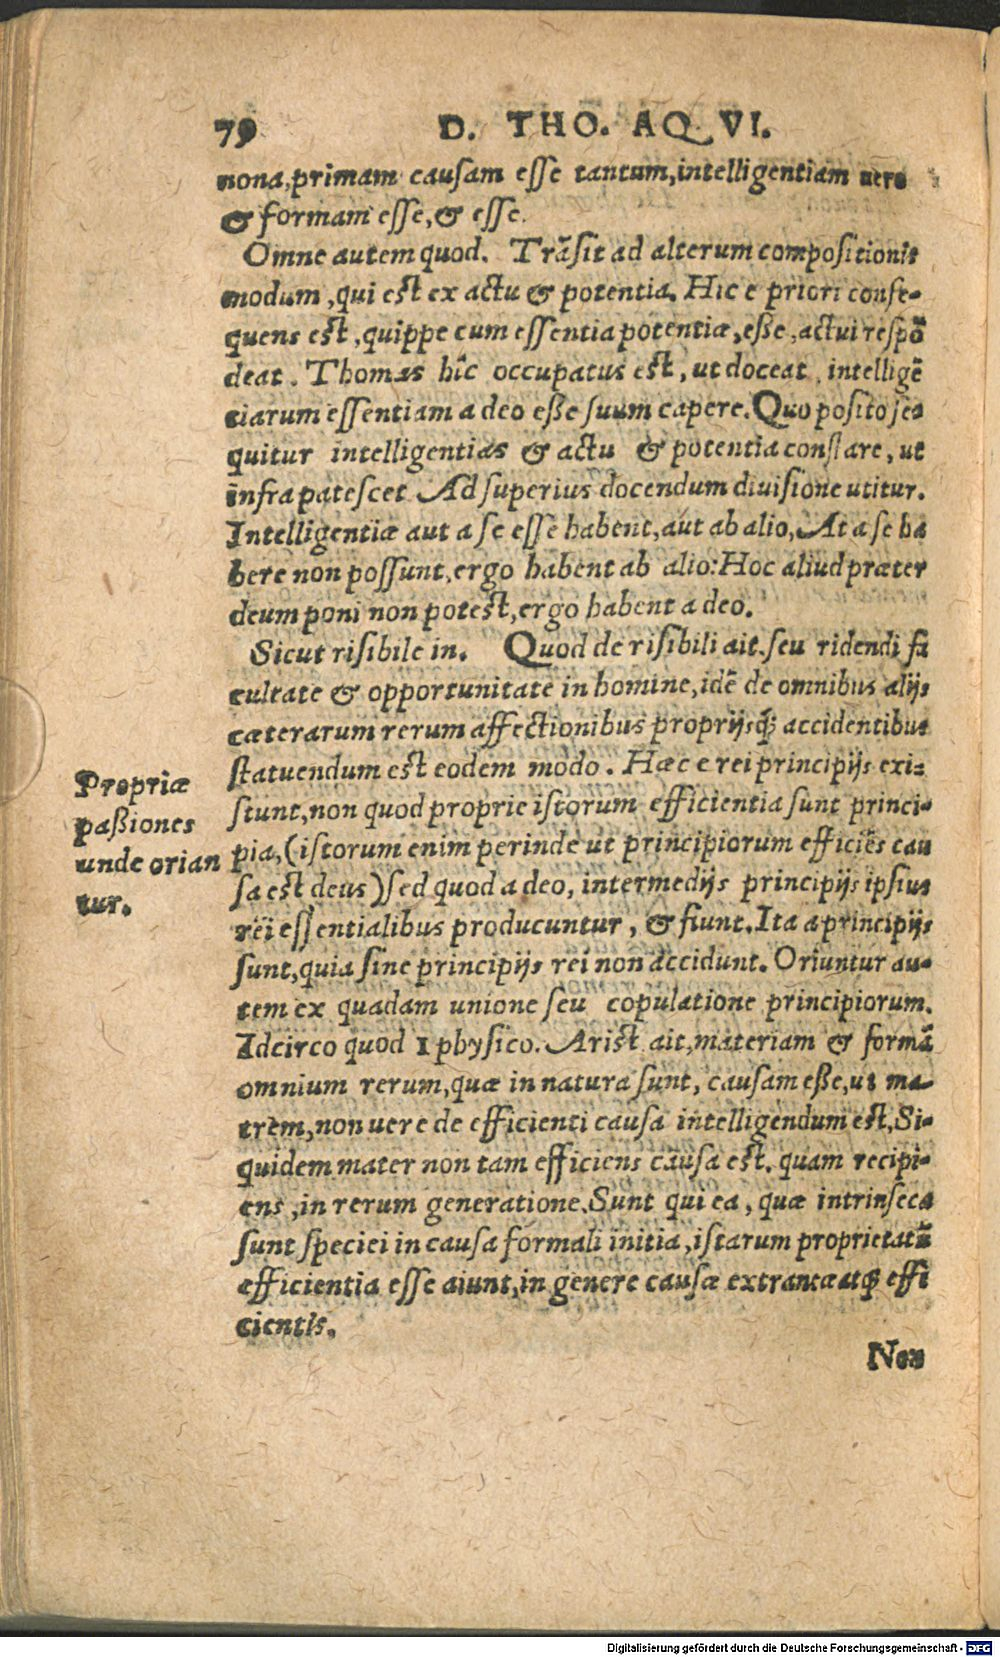 79 D. THO. AQ VI.
nona, primam causam esse tantum, intelligentiam uero
& formam esse, & esse.
Omne autem quod. Trãsit ad alterum compositionis
modum, qui est ex actu & potentia. Hic e priori conse-
quens est, quippe cum essentia potentiæ, eße, actui respõ
deat. Thomas hîc occupatus est, ut doceat, intelligẽ
tiarum essentiam a deo eße suum capere. Quo posito se
quitur intelligentias & actu & potentia constare, ut
infra patescet. Ad superius docendum diuisione utitur.
Intelligentiæ aut a se esse habent, aut ab alio, At a se ha
bere non possunt, ergo habent ab alio: Hoc aliud præter
deum poni non potest, ergo habent a deo.
Sicut risibile in. Quod de risibili ait. seu ridendi fa
cultate & opportunitate in homine, idẽ de omnibus alijs
cæterarum rerum affectionibus proprijsq; accidentibus
statuendum est eodem modo. Hæc e rei principijs exi-
stunt, non quod proprie istorum efficientia sunt princi-
pia, (istorum enim perinde ut principiorum efficiẽs cau
sa est deus) sed quod a deo, intermedijs principijs ipsius
rei essentialibus producuntur, & fiunt. Ita a principijs
sunt, quia sine principijs rei non accidunt. Oriuntur au-
tem ex quadam unione seu copulatione principiorum.
Idcirco quod 1 physico. Arist. ait, materiam & formã
omnium rerum, quæ in natura sunt, causam eße, ut ma-
trem, non uere de efficienti causa intelligendum est, Si-
quidem mater non tam efficiens causa est. quam recipi-
ens, in rerum generatione. Sunt qui ea, quæ intrinseca
sunt speciei in causa formali initia, istarum proprietatũ
efficientia esse aiunt, in genere causæ extraneæ atq; effi
cientis.
Propriæ
paßiones
unde orian
tur.
Non
Digitalisierung gefördert durch die Deutsche Forschungsgemeinschaft - DFG